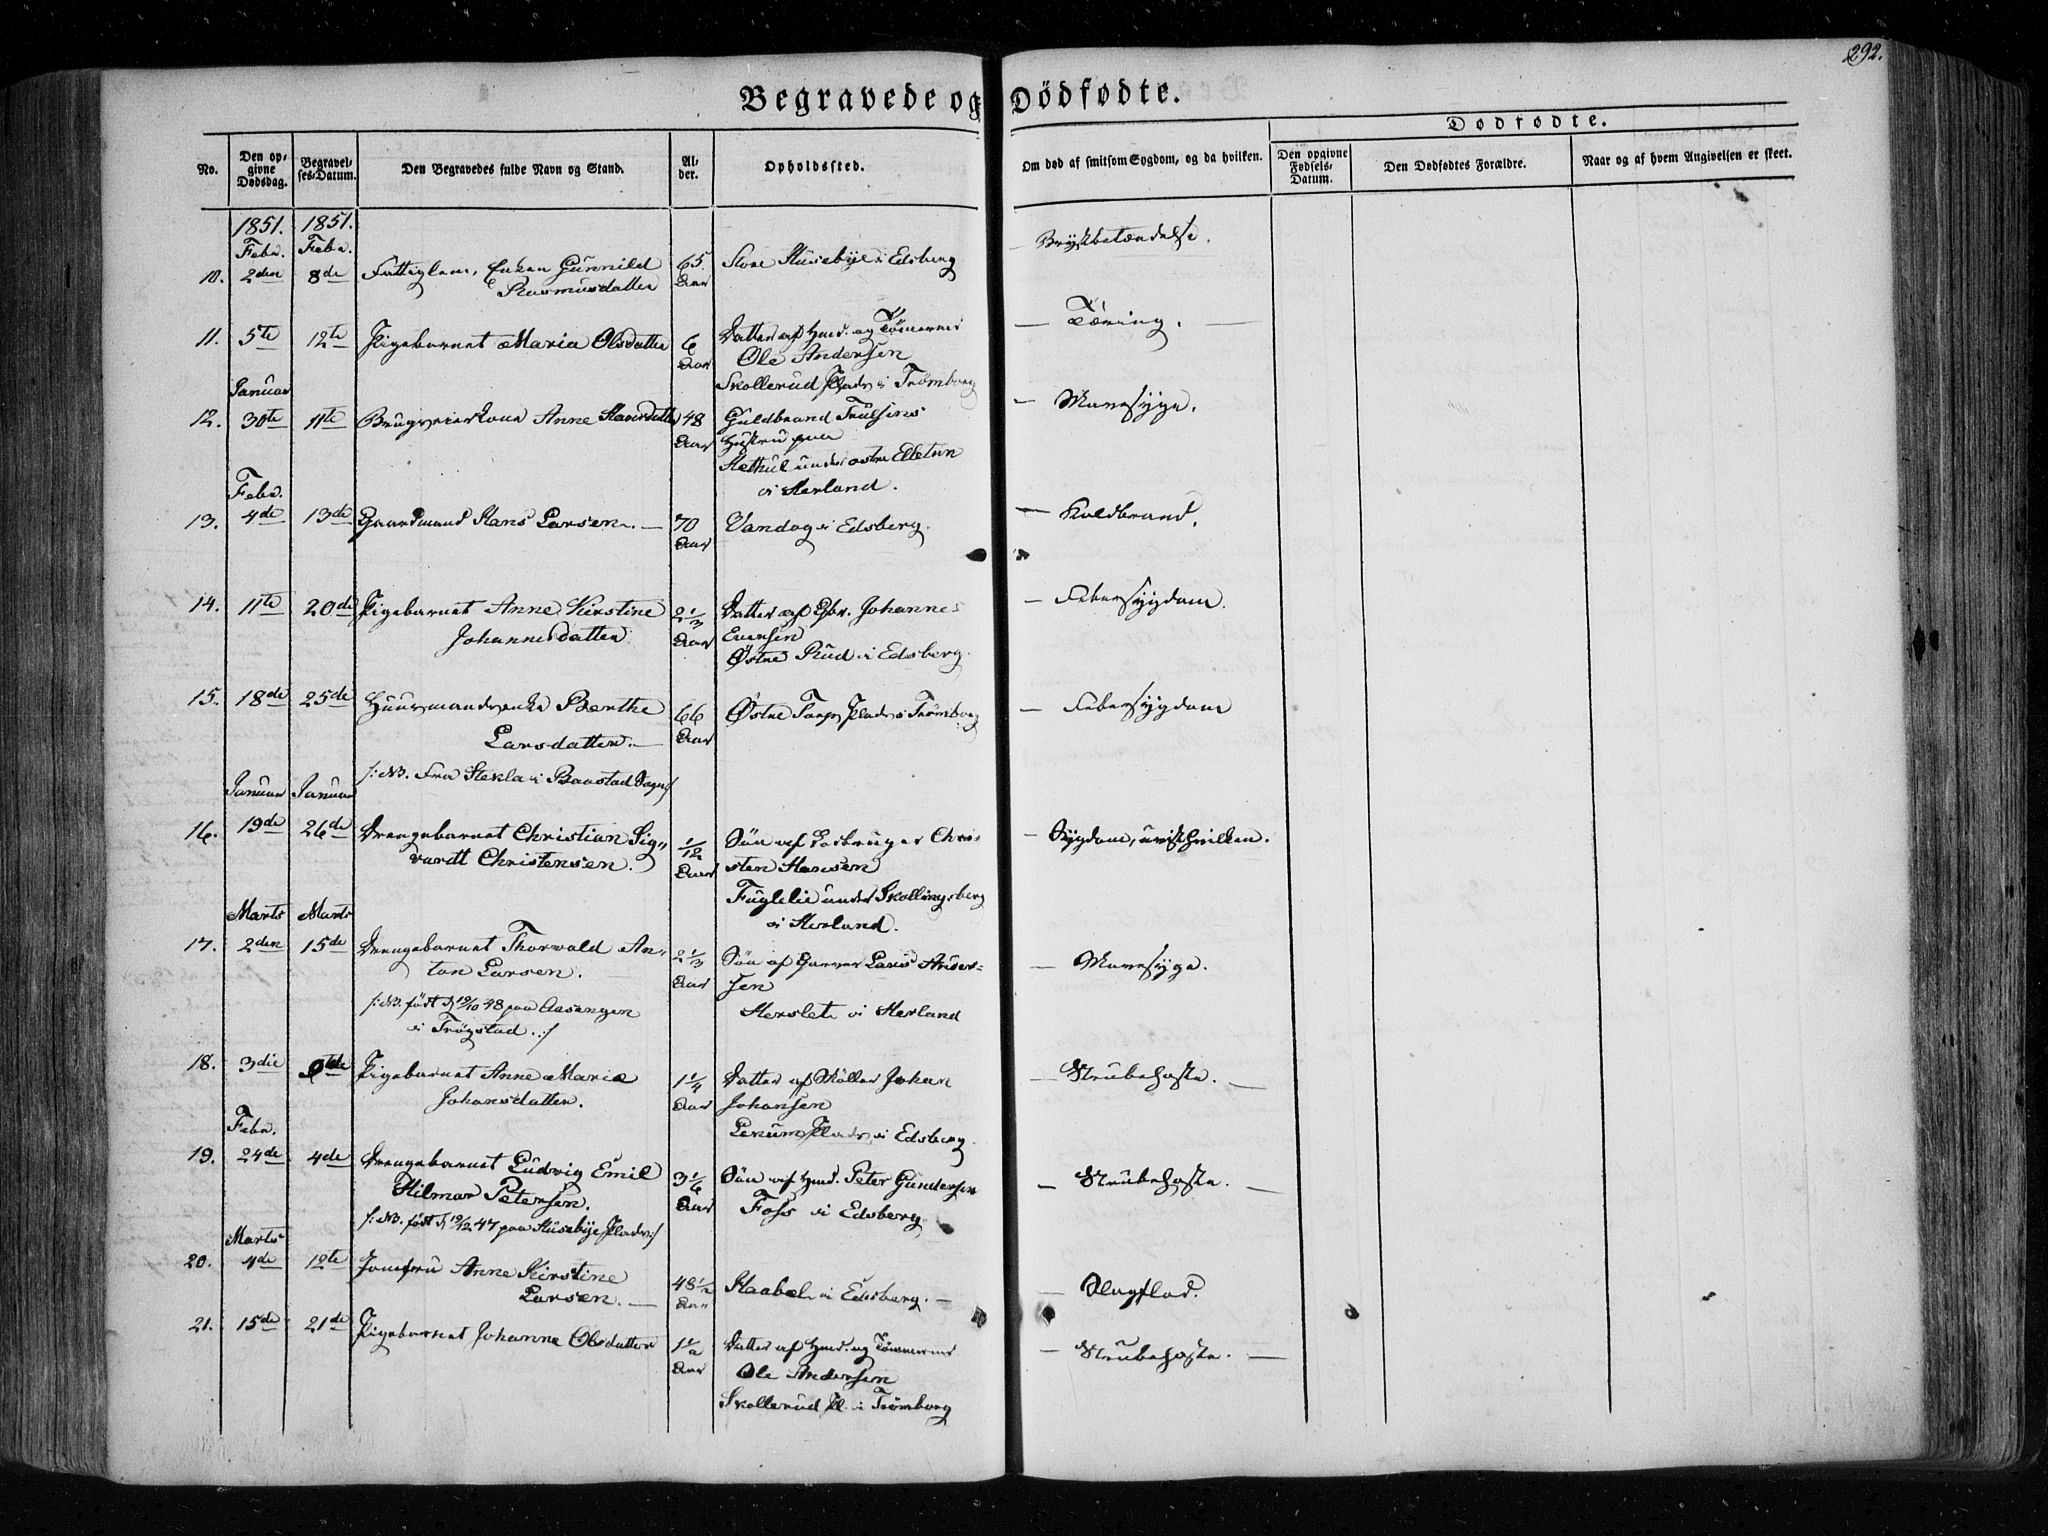 292.
Begravede og Dødfødte.
Dødfødte.
No.
Den op-
givne
Dødsdag.
Begravel-
ses-Datum.
Den Begravedes fulde Navn og Stand.
Al-
der.
Opholdssted.
Om død af smitsom Sygdom, og da hvilken.
Den opgivne
Fødsels-
Datum.
Den Dødfødtes Forældre.
Naar og af hvem Angivelsen er skeet.
1851. 1851.
Febr. Febr.
10. 2den 8de Fattiglem, Enken Gunnild 65 Store Husebye i Edsberg — Brystbetændelse.
Rasmusdatter Aar
11. 5te 12te Pigebarnet Maria Olsdatter 6 Datter af Hmd. og Tømmermd — Tæring. —
Aar Ole Andersen
Januar Skollerud Plads i Trømborg
12. 30te 11te Anne Hansdatter 48 Guldbrand Trulsens — Mavesyge.
Aar Hustru paa
under østre Elletun
Febr. i Herland.
13. 4de 13de Gaardmand Hans Larsen. — 70 Vandog i Edsberg. — Koldbrand.
Aar
14. 11te 20de Pigebarnet Anne Kirstine 2 1/3 Datter af Gbr. Johannes — Febersygdom.
Johannesdatter Aar Evensen
Østre Rud i Edsberg.
15. 18de 25de Huusmandsenke Berthe 66 Østre Torp Plads i Trømborg — Febersygdom
Larsdatter. — Aar
/: NB. Fra Hekla i Baastad Sogn /
Januar Januar
16. 19de 26de Drengebarnet Christian Sig- 1/12 Søn af Chri- — Sygdom, uvist hvilken.
vardt Christensen. Aar sten Hansen
Fuglelie under Skollingsberg
Marts Marts i Herland.
17. 2den 15de Drengebarnet Thorvald An- 2 1/3 Søn af Garver Lars Ander- — Mavesyge.
ton Larsen. Aar sen
/: NB. født d 19/10 48 paa Aasengen Herslet i Herland
i Trøgstad. :/
18. 3die Pigebarnet Anne Maria 1 1/4 Datter af Møller Johan — Strubehoste. —
Johansdatter. Aar Johansen
Febr. Lerum Plads i Edsberg.
19. 24de 4de Drengebarnet Ludvig Emil 3 1/6 Søn af Hmd. Peter Gundersen — Strubehoste. —
Hilmar Petersen. Aar Foss i Edsberg
/: NB. født d 19/12 47 paa Husebye Plads :/
Marts
20. 4de 12te Jomfru Anne Kirstine 48 1/2 Raabøl i Edsberg. — — Slagflod.
Larsen. — Aar
21. 15de 21de Pigebarnet Johanne Olsdatter 1 1/2 Datter af Hmd. og Tømmermd — Strubehoste. —
Aar Ole Andersen
Skollerud Pl. i Trømborg